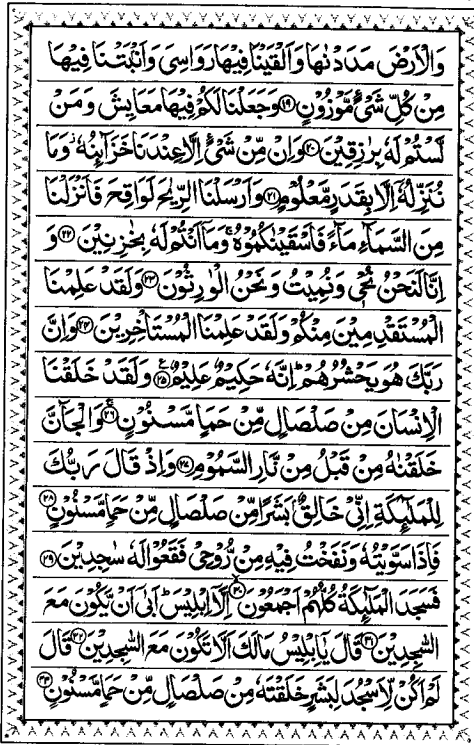 وَالْاَرْضَ مَدَدْنٰهَا وَاَلْقَيْنَا فِيْهَا رَوَاسِىَ وَاَنْۢبَتْنَا فِيْهَا
مِنْ كُلِّ شَىْءٍ مَّوْزُوْنٍ ۝١٩ وَجَعَلْنَا لَكُمْ فِيْهَا مَعَايِشَ وَمَنْ
لَّسْتُمْ لَهٗ بِرٰزِقِيْنَ ۝٢٠ وَاِنْ مِّنْ شَىْءٍ اِلَّا عِنْدَنَا خَزَآئِنُهٗ وَمَا
نُنَزِّلُهٗۤ اِلَّا بِقَدَرٍ مَّعْلُوْمٍ ۝٢١ وَاَرْسَلْنَا الرِّيٰحَ لَوَاقِحَ فَاَنْزَلْنَا
مِنَ السَّمَآءِ مَآءً فَاَسْقَيْنٰكُمُوْهُ ۚ وَمَاۤ اَنْتُمْ لَهٗ بِخٰزِنِيْنَ ۝٢٢ وَ
اِنَّا لَنَحْنُ نُحْىٖ وَنُمِيْتُ وَنَحْنُ الْوٰرِثُوْنَ ۝٢٣ وَلَقَدْ عَلِمْنَا
الْمُسْتَقْدِمِيْنَ مِنْكُمْ وَلَقَدْ عَلِمْنَا الْمُسْتَاْخِرِيْنَ ۝٢٤ وَاِنَّ
رَبَّكَ هُوَ يَحْشُرُهُمْ ؕ اِنَّهٗ حَكِيْمٌ عَلِيْمٌ ۝٢٥ وَلَقَدْ خَلَقْنَا
الْاِنْسَانَ مِنْ صَلْصَالٍ مِّنْ حَمَاٍ مَّسْنُوْنٍ ۝٢٦ وَالْجَآنَّ
خَلَقْنٰهُ مِنْ قَبْلُ مِنْ نَّارِ السَّمُوْمِ ۝٢٧ وَاِذْ قَالَ رَبُّكَ
لِلْمَلٰٓئِكَةِ اِنِّىْ خَالِقٌۢ بَشَرًا مِّنْ صَلْصَالٍ مِّنْ حَمَاٍ مَّسْنُوْنٍ ۝٢٨
فَاِذَا سَوَّيْتُهٗ وَنَفَخْتُ فِيْهِ مِنْ رُّوْحِىْ فَقَعُوْا لَهٗ سٰجِدِيْنَ ۝٢٩
فَسَجَدَ الْمَلٰٓئِكَةُ كُلُّهُمْ اَجْمَعُوْنَ ۝٣٠ اِلَّاۤ اِبْلِيْسَ اَبٰٓى اَنْ يَّكُوْنَ مَعَ
السّٰجِدِيْنَ ۝٣١ قَالَ يٰۤاِبْلِيْسُ مَالَكَ اَلَّا تَكُوْنَ مَعَ السّٰجِدِيْنَ ۝٣٢ قَالَ
لَمْ اَكُنْ لِّاَسْجُدَ لِبَشَرٍ خَلَقْتَهٗ مِنْ صَلْصَالٍ مِّنْ حَمَاٍ مَّسْنُوْنٍ ۝٣٣